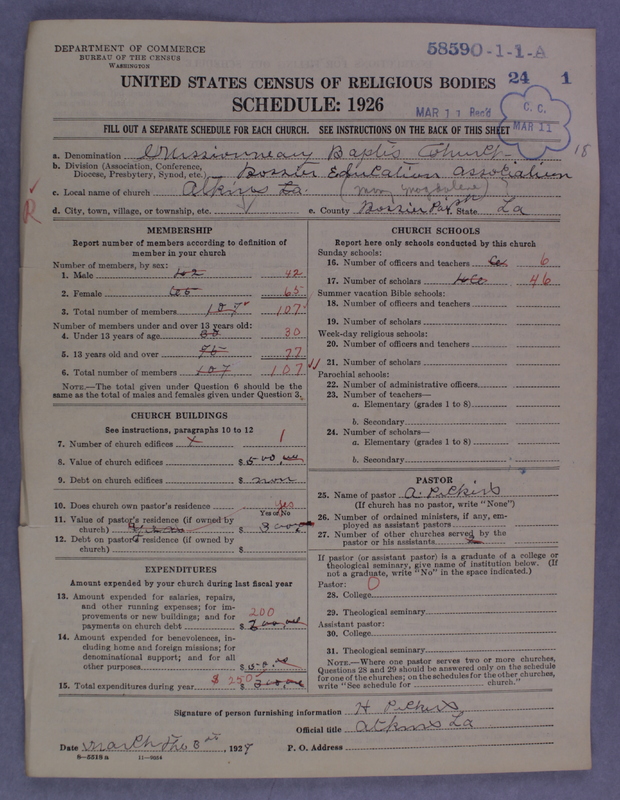 DEPARTMENT OF COMMERCE
BUREAU OF THE CENSUS
WASHINGTON
58590-1-1-A
UNITED STATES CENSUS OF RELIGIOUS BODIES 24 1
SCHEDULE: 1926
MAR 11 Rec'd
C. C.
MAR 11
FILL OUT A SEPARATE SCHEDULE FOR EACH CHURCH. SEE INSTRUCTIONS ON THE BACK OF THIS SHEET
a. Denomination Missionneary Baptis Church 18
b. Division (Association, Conference,
Diocese, Presbytery, Synod, etc.) Bossier Education association
c. Local name of church Atkins La.
R
d. City, town, village, or township, etc.
e. County Bossier Parsh State La
MEMBERSHIP
Report number of members according to definition of
member in your church
Number of members, by sex:
1. Male 42
2. Female 65
3. Total number of members 107 107
Number of members under and over 13 years old:
4. Under 13 years of age 30
5. 13 years old and over 77
6. Total number of members 107 107
NOTE.—The total given under Question 6 should be the
same as the total of males and females given under Question 3.
CHURCH BUILDINGS
See instructions, paragraphs 10 to 12
7. Number of church edifices x 1
8. Value of church edifices $500.00
9. Debt on church edifices $ non
10. Does church own pastor's residence yes
Yes or No
11. Value of pastor's residence (if owned by
church) $
12. Debt on pastor's residence (if owned by
church) $
EXPENDITURES
Amount expended by your church during last fiscal year
13. Amount expended for salaries, repairs,
and other running expenses; for im-
provements or new buildings; and for
payments on church debt 200 $
14. Amount expended for benevolences, in-
cluding home and foreign missions; for
denominational support; and for all
other purposes $50.00
15. Total expenditures during year $ 250 $
CHURCH SCHOOLS
Report here only schools conducted by this church
Sunday schools:
16. Number of officers and teachers 6
17. Number of scholars 46
Summer vacation Bible schools:
18. Number of officers and teachers
19. Number of scholars
Week-day religious schools:
20. Number of officers and teachers
21. Number of scholars
Parochial schools:
22. Number of administrative officers
23. Number of teachers—
a. Elementary (grades 1 to 8)
b. Secondary
24. Number of scholars—
a. Elementary (grades 1 to 8)
b. Secondary
PASTOR
25. Name of pastor
(If church has no pastor, write "None")
26. Number of ordained ministers, if any, em-
ployed as assistant pastors
27. Number of other churches served by the
pastor or his assistants
If pastor (or assistant pastor) is a graduate of a college or
theological seminary, give name of institution below. (If
not a graduate, write "No" in the space indicated.)
Pastor: 0
28. College
29. Theological seminary
Assistant pastor:
30. College
31. Theological seminary
NOTE.—Where one pastor serves two or more churches,
Questions 28 and 29 should be answered only on the schedule
for one of the churches; on the schedules for the other churches,
write "See schedule for church."
Signature of person furnishing information
Official title Atkins La
Date March the 8 st, 1927 P. O. Address
8—5518 a 11—9054